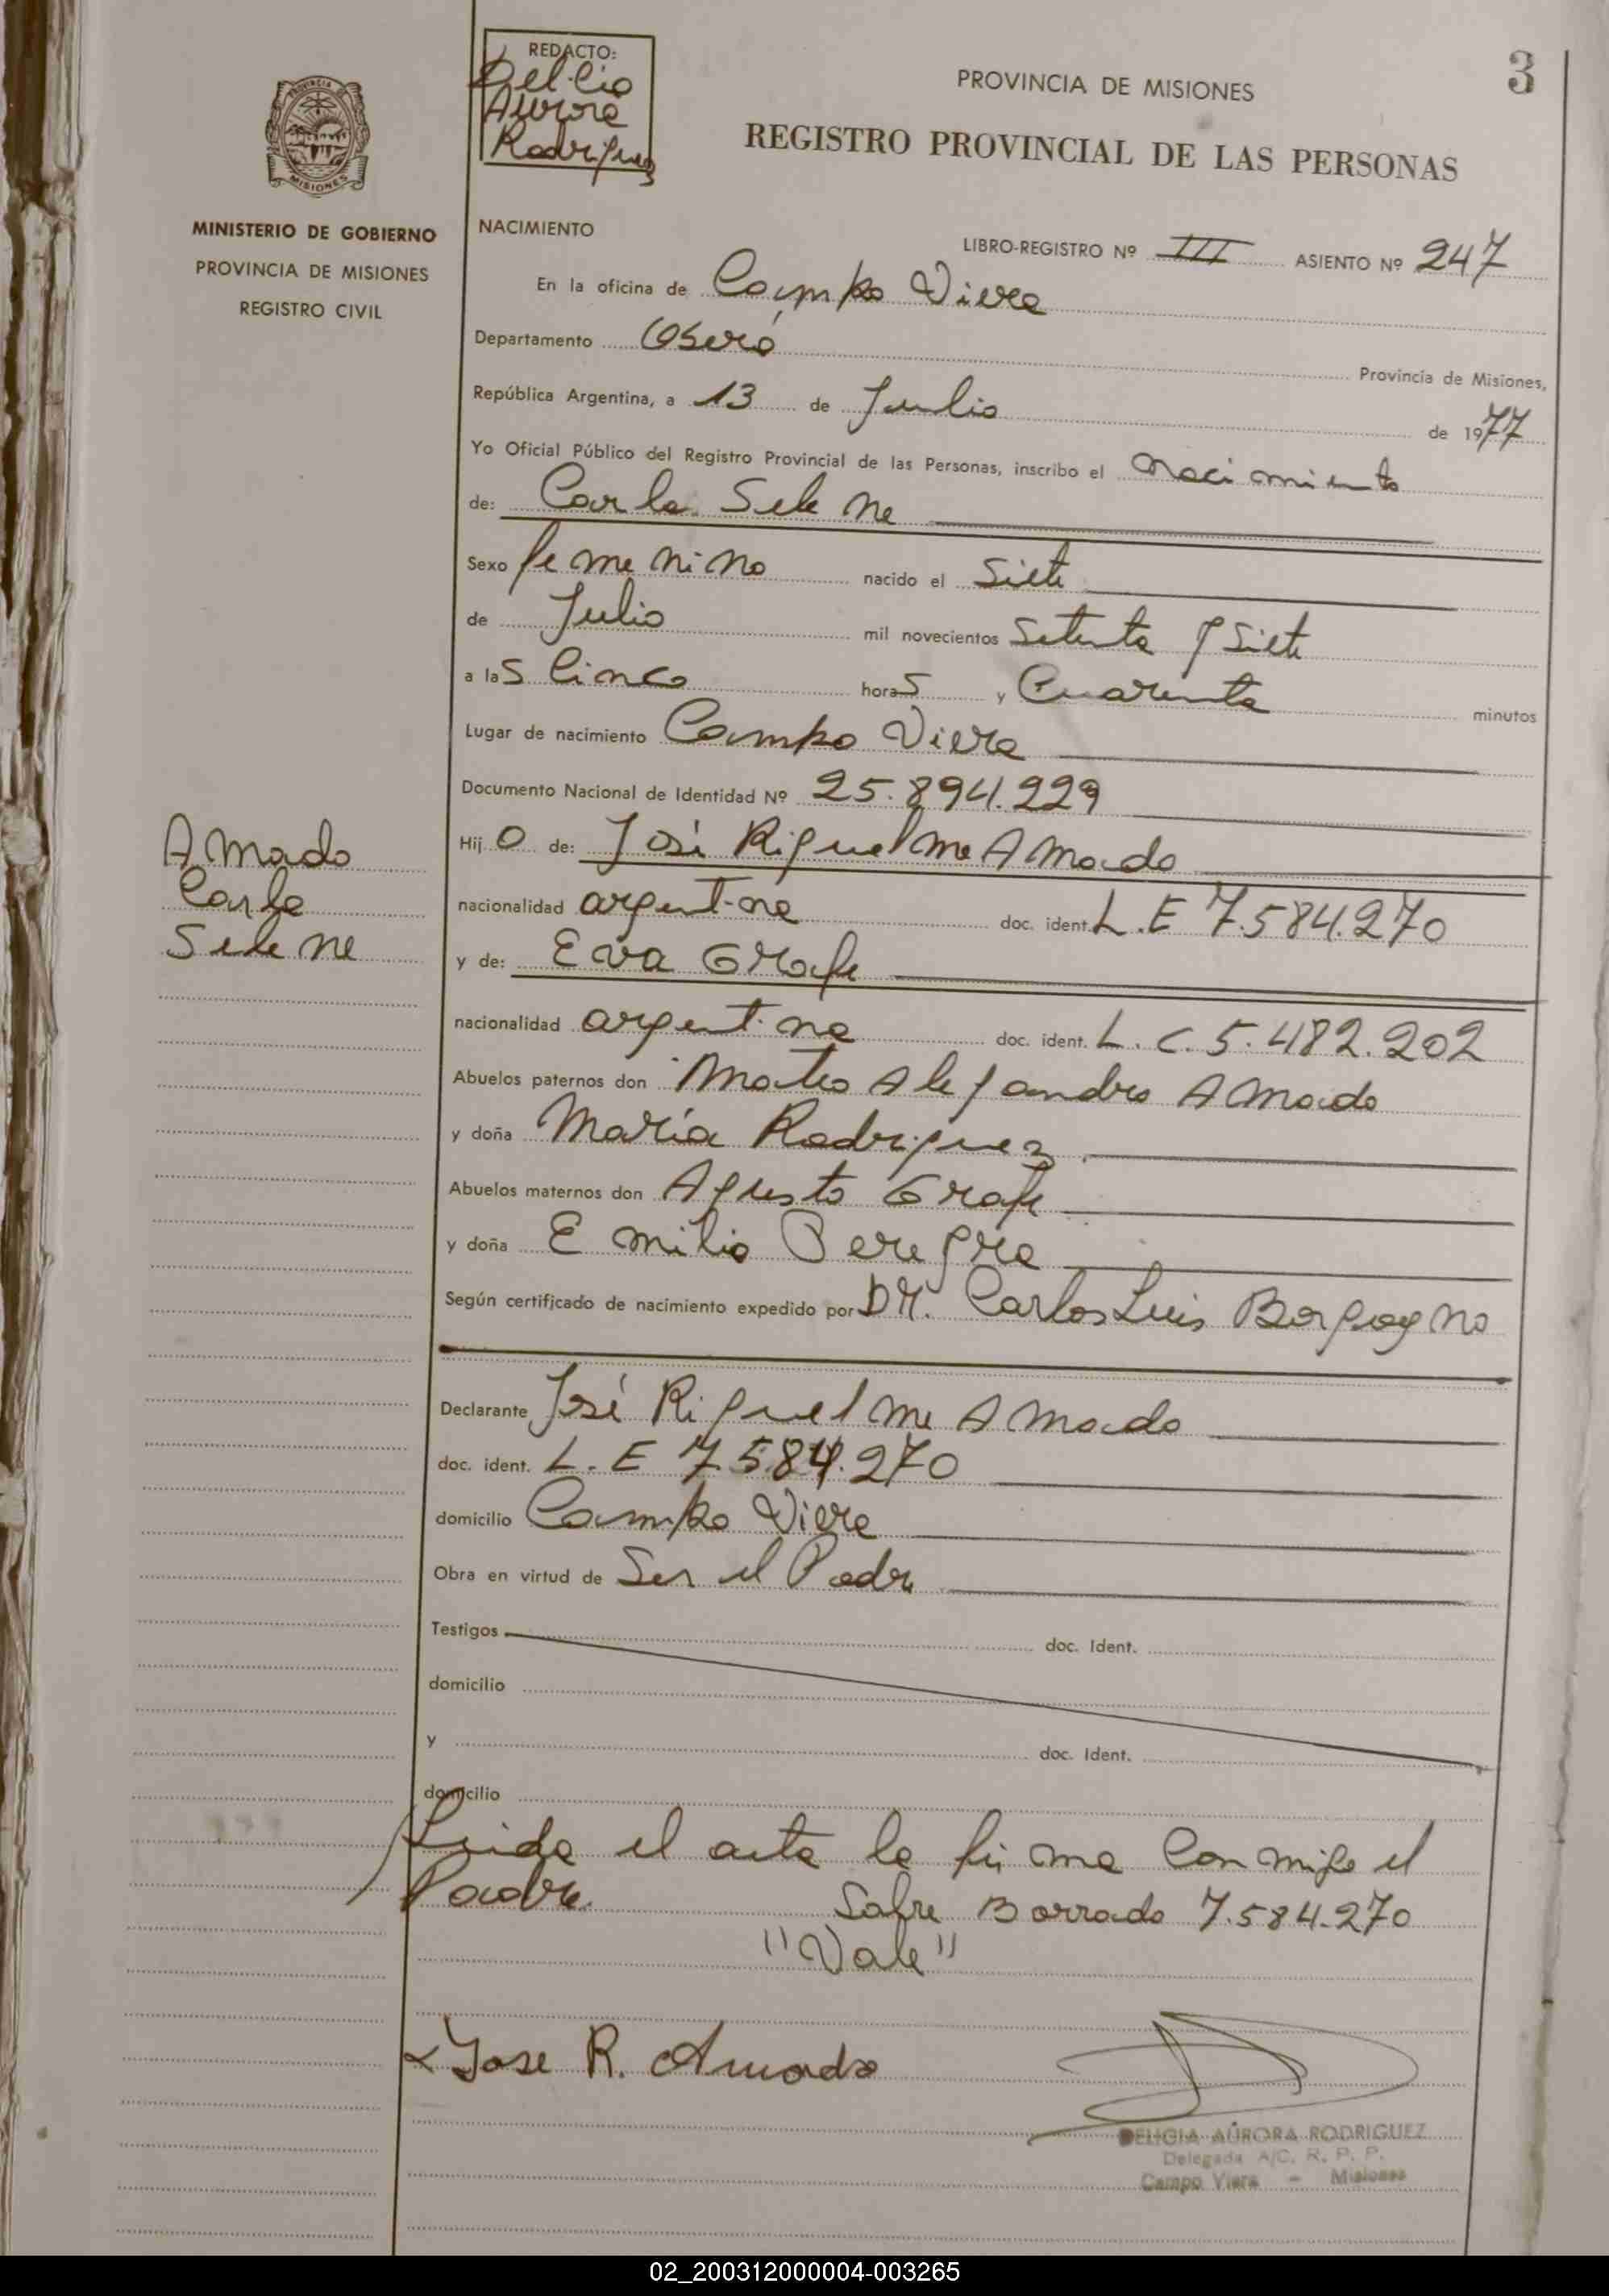 3
REDACTO:
Delicia
Aurora
Rodriguez
PROVINCIA DE MISIONES
REGISTRO PROVINCIAL DE LAS PERSONAS
PROVINCIA DE
MISIONES
MINISTERIO DE GOBIERNO
PROVINCIA DE MISIONES
REGISTRO CIVIL
NACIMIENTO
LIBRO-REGISTRO Nº III ASIENTO Nº 247
En la oficina de Campo Viera
Departamento Oberá Provincia de Misiones,
República Argentina, a 13 de Julio de 1977
Yo Oficial Público del Registro Provincial de las Personas, inscribo el nacimiento
de: Carla Selene
Sexo femenino nacido el Siete
de Julio mil novecientos Setenta y Siete
a las Cinco horas y Cuarenta minutos
Lugar de nacimiento Campo Viera
Documento Nacional de Identidad Nº 25.894.229
Amado
Carla
Selene
Hijo de: José Riguelme Amado
nacionalidad argentina doc. ident. L.E 7.584.270
y de: Eva Grafe
nacionalidad argentina doc. ident. L.C. 5.482.202
Abuelos paternos don Mateo Alejandro Amado
y doña María Rodriguez
Abuelos maternos don Agusto Grafe
y doña Emilia
Según certificado de nacimiento expedido por DR. Carlos Luis Borgogno
Declarante José Riguelme Amado
doc. ident. L.E 7.584.270
domicilio Campo Viera
Obra en virtud de Ser el Padre
Testigos doc. Ident.
domicilio
y doc. Ident.
domicilio
Leida el acta la firma conmigo el
Padre. Sobre Borrado 7.584.270
"Vale"
Jose R. Amado
DELICIA AURORA RODRIGUEZ
Delegada A/C. R. P. P.
Campo Viera - Misiones
02_200312000004-003265